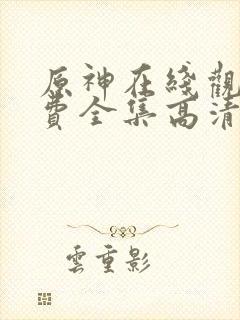 原神在綫觀
費全集高清
雲重影